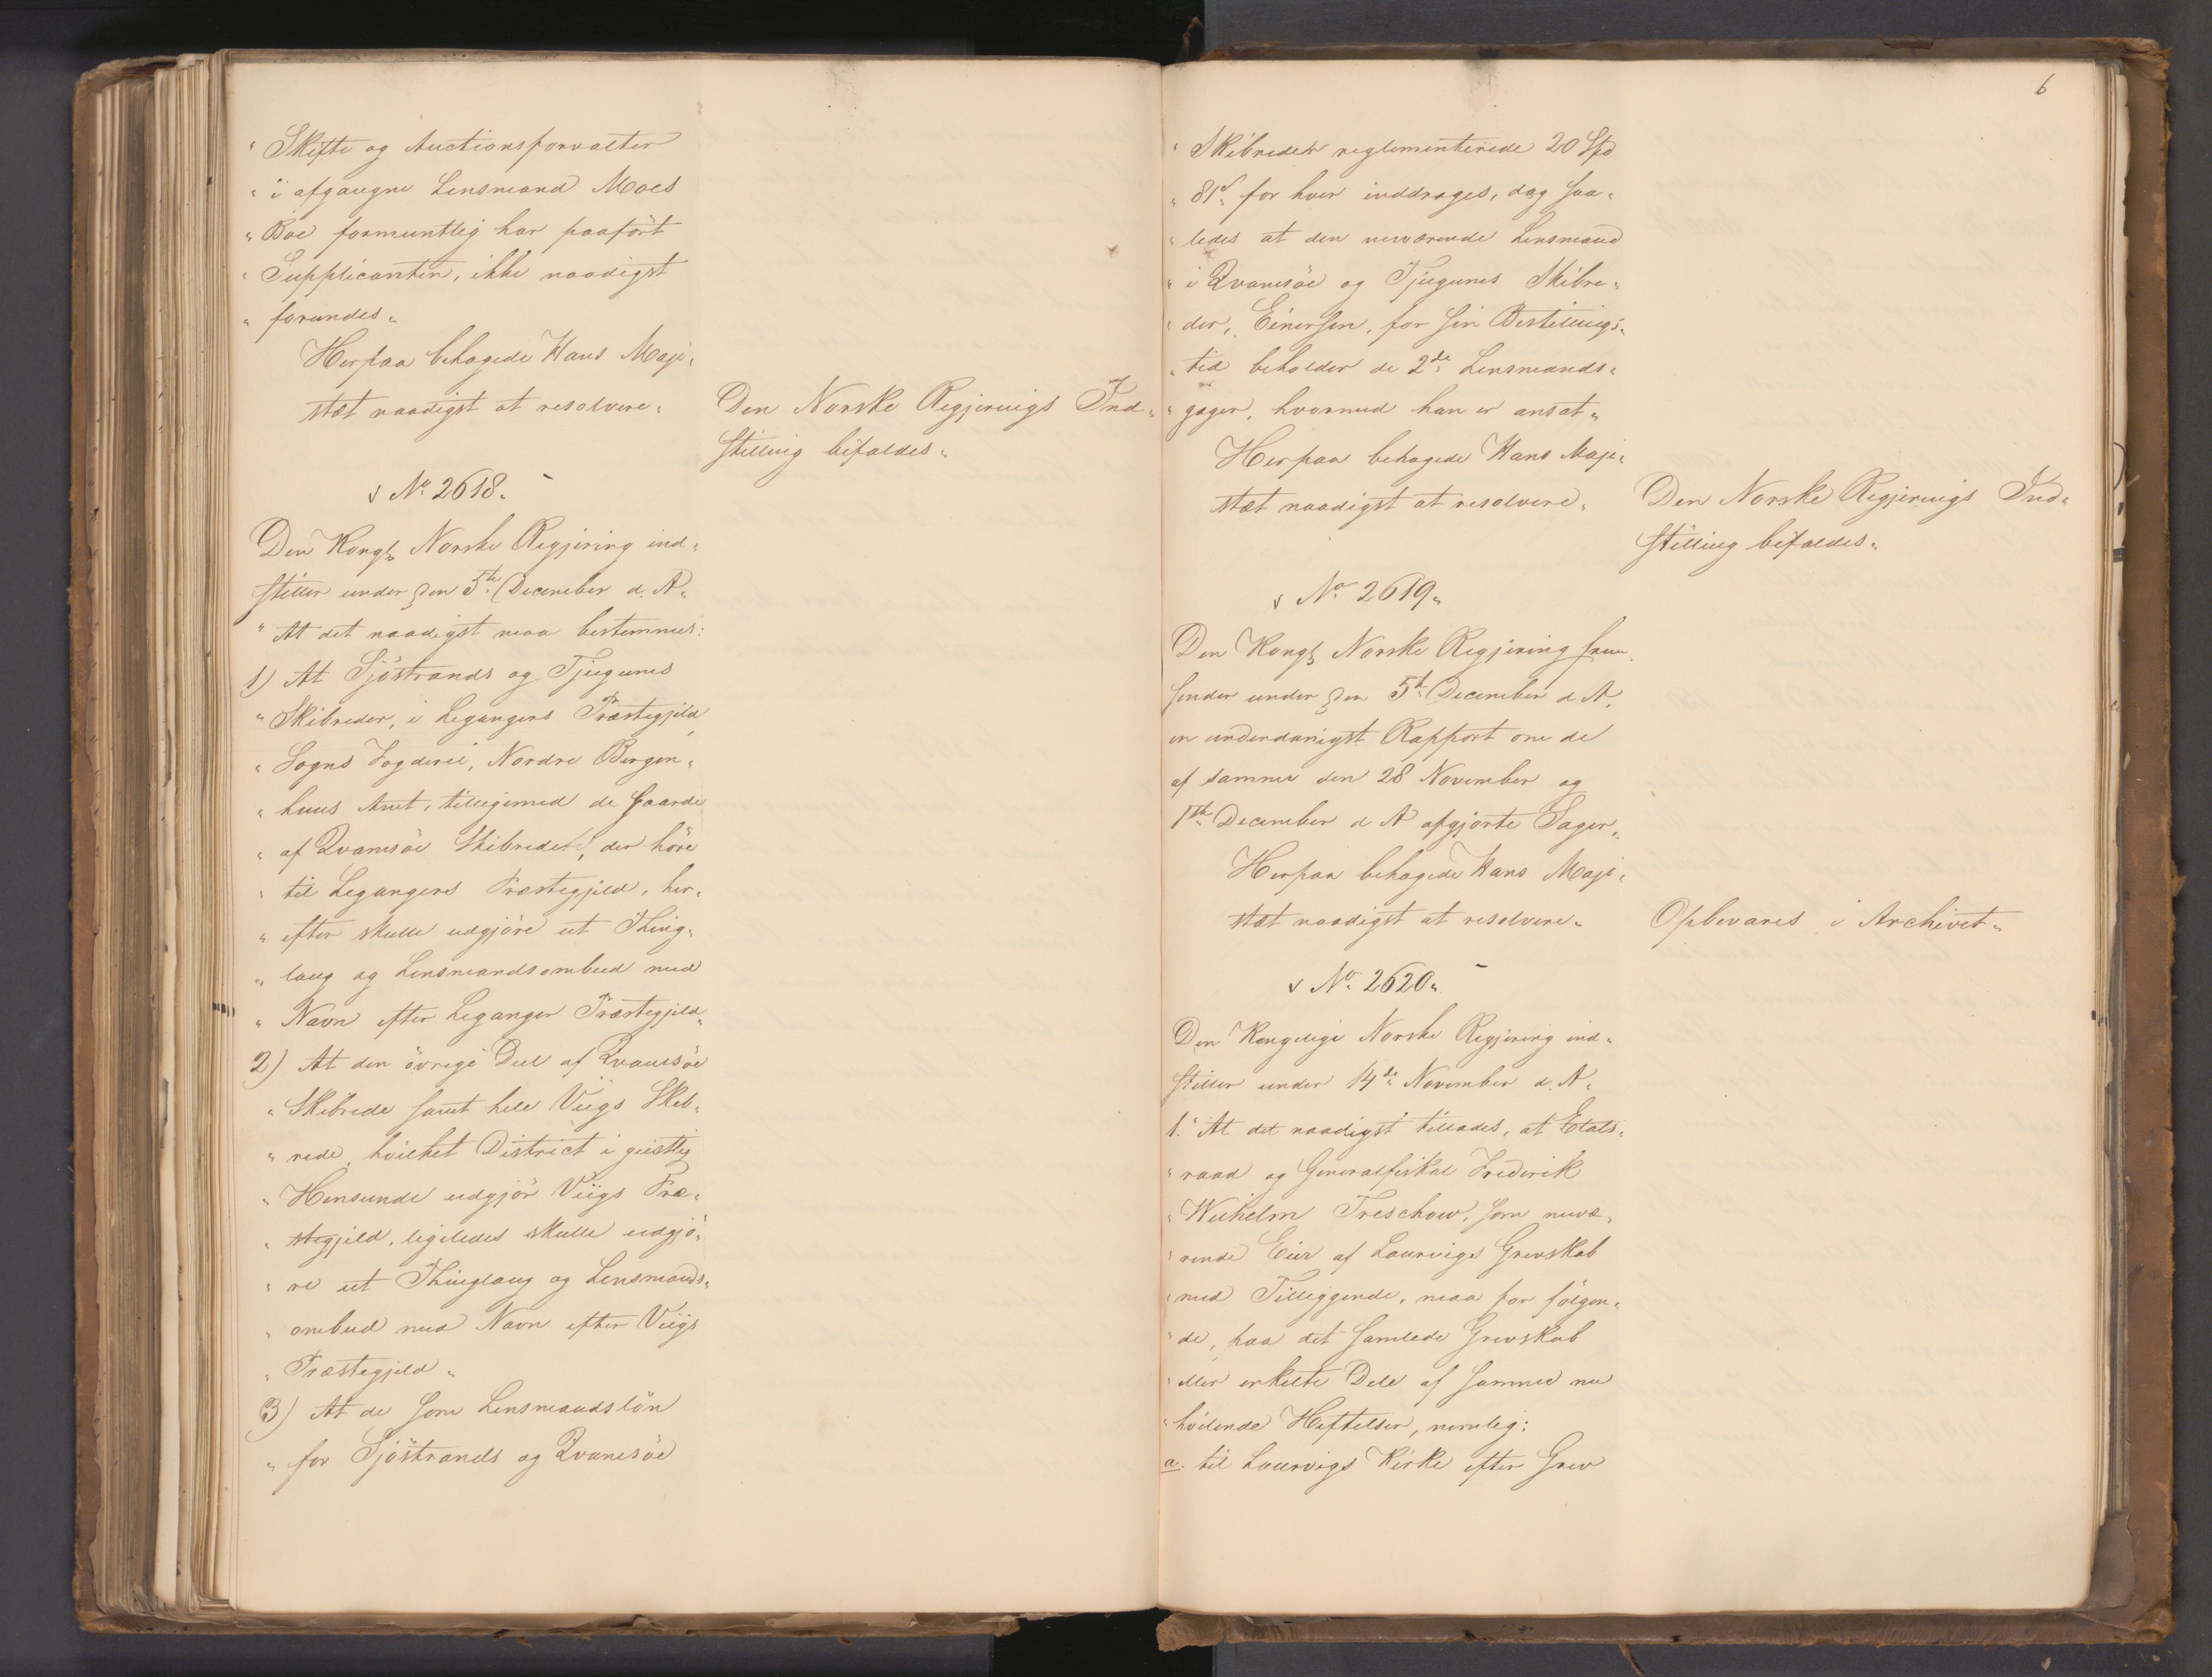 " Skifte og Auctionsforvalter
" i afgangne Lensmand Moes
" Boe formentlig har paaført
" Supplicanten, ikke naadigst
" forundes "
Herpaa behagede Hans Maje-
stæt naadigst at resolvere "
Den Norske Regjerings Ind-
stilling bifaldes "
No 2618 "
Den Kongl Norske Regjering ind-
stiller under den 5te December d. A.
" At det naadigst maa bestemmes:
1) At Sjöstrands og Tjugums
" Skibreder, i Legangers Præstegjeld,
" Sogns Fogderie, Nordre Bergen-
" huus Amt, tilligemed de Gaarde
" af Qvamsöe Skibrede, der höre
" til Legangers Præstegjeld, her-
" efter skulle udgjöre et Thing-
" laug og Lensmandsombud med
" Navn efter Leganger Præstegjeld "
2) At den övrige Deel af Qvamsöe
" Skibrede samt hele Viigs Skib-
" rede, hvilket District i geistlig
" Henseende udgjör Viigs Præ-
" stegjeld, ligeledes skulle udgjö-
" re et Thinglaug og Lensmands-
" ombud med Navn efter Viigs
" Præstegjeld "
3) At de som Lensmandslön
" for Sjöstrands og Qvamsöe
6
" Skibreder reglementerede 20 Spd
" 81 s for hver inddrages, dog saa-
" ledes at den nuværende Lensmand
" i Qvamsöe og Tjugums Skibre-
" der, Einersen, for sin Bestillings-
" tid beholder de 2de Lensmands-
" gager, hvormed han er ansat "
Herpaa behagede Hans Maje-
stæt naadigst at resolvere "
Den Norske Regjerings Ind-
stilling bifaldes "
No 2619 "
Den Kongl Norske Regjering frem-
sender under den 5te December d A,
en underdanigst Rapport om de
af samme den 28 November og
1ste December d A afgjorte Sager "
Herpaa behagede Hans Maje-
stæt naadigst at resolvere "
Opbevares i Archivet "
No 2620 "
Den Kongelige Norske Regjering ind-
stiller under 14de November d. A.
1. " At det naadigst tillades, at Etats-
" raad og Generalfiskal Frederik
" Wilhelm Treschow, som nuvæ-
" rende Eier af Laurvigs Grevskab
" med Tilliggende, maa for fölgen-
" de, paa det samlede Grevskab
" eller enkelte Dele af samme nu
" hvilende Heftelser, nemlig:
a. til Laurvigs Kirke efter Grev